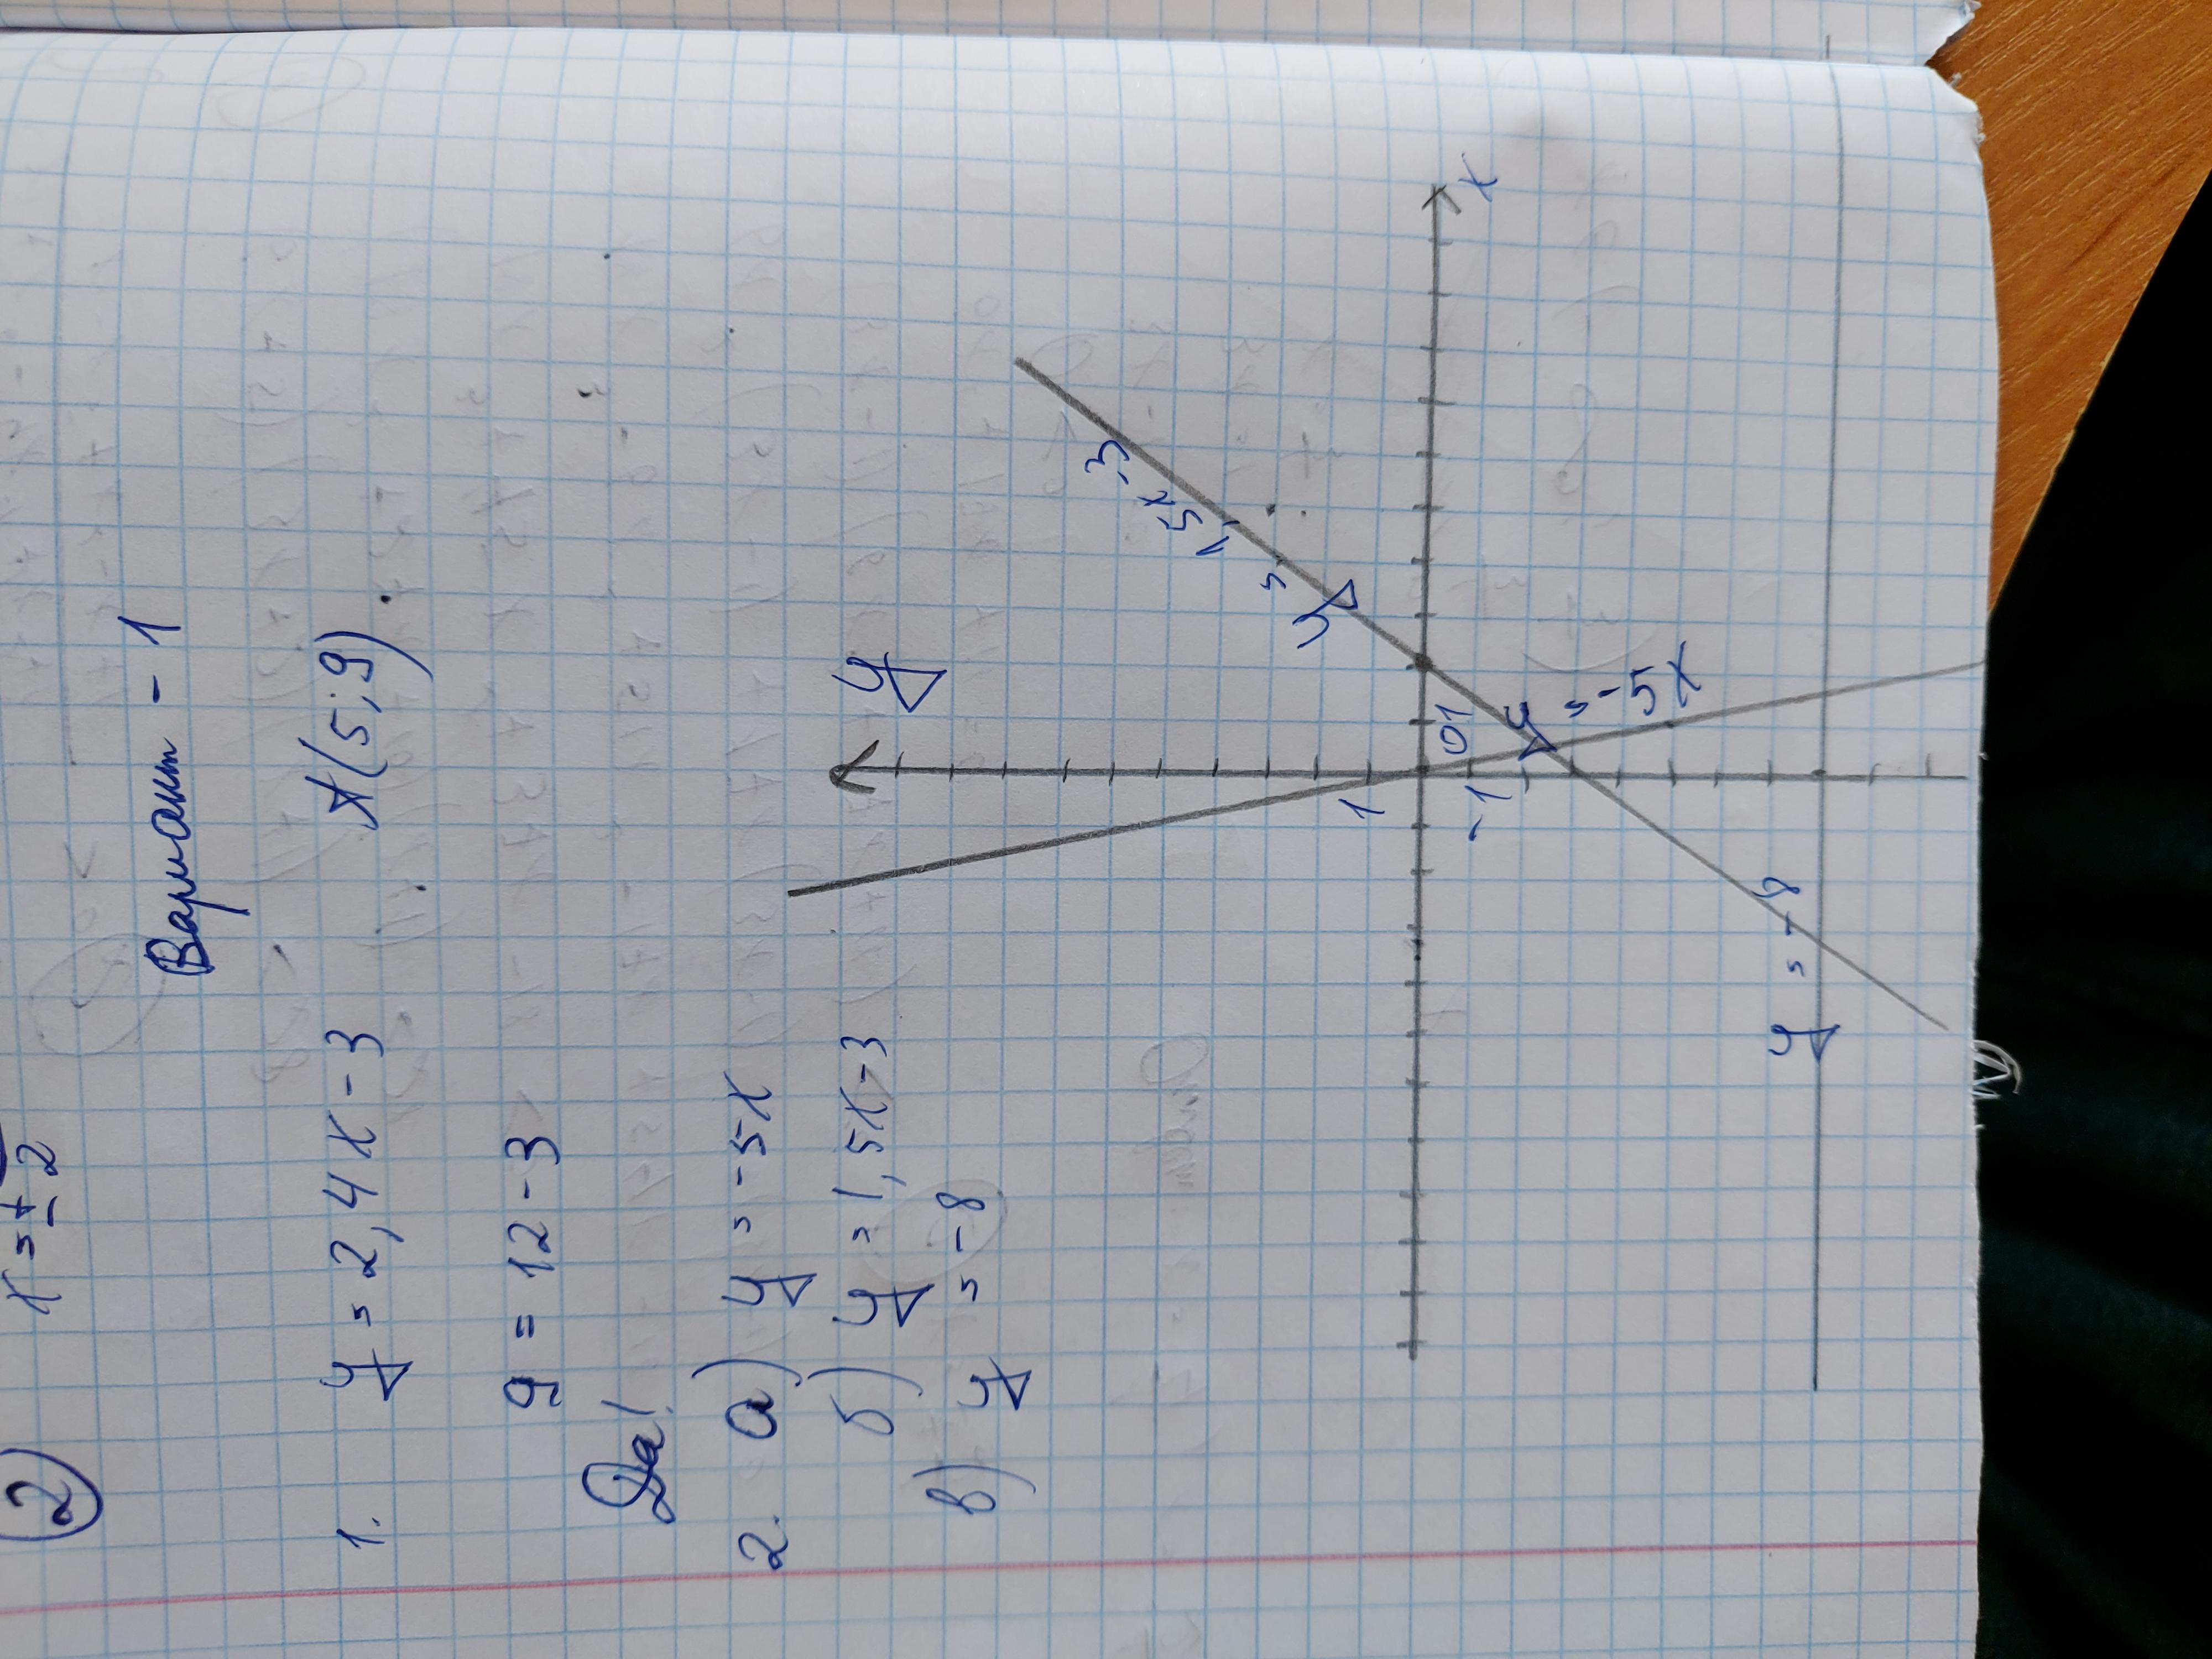 x = ± 2
2
Вариант - 1
1. y = 2,4x - 3 A(5;9)
9 = 12 - 3
Да!
2. а) y = -5x
б) y = 1,5x - 3
в) y = -8
y
y = 1,5x - 3
1
0 1
x
-1
y = -5x
y = -8